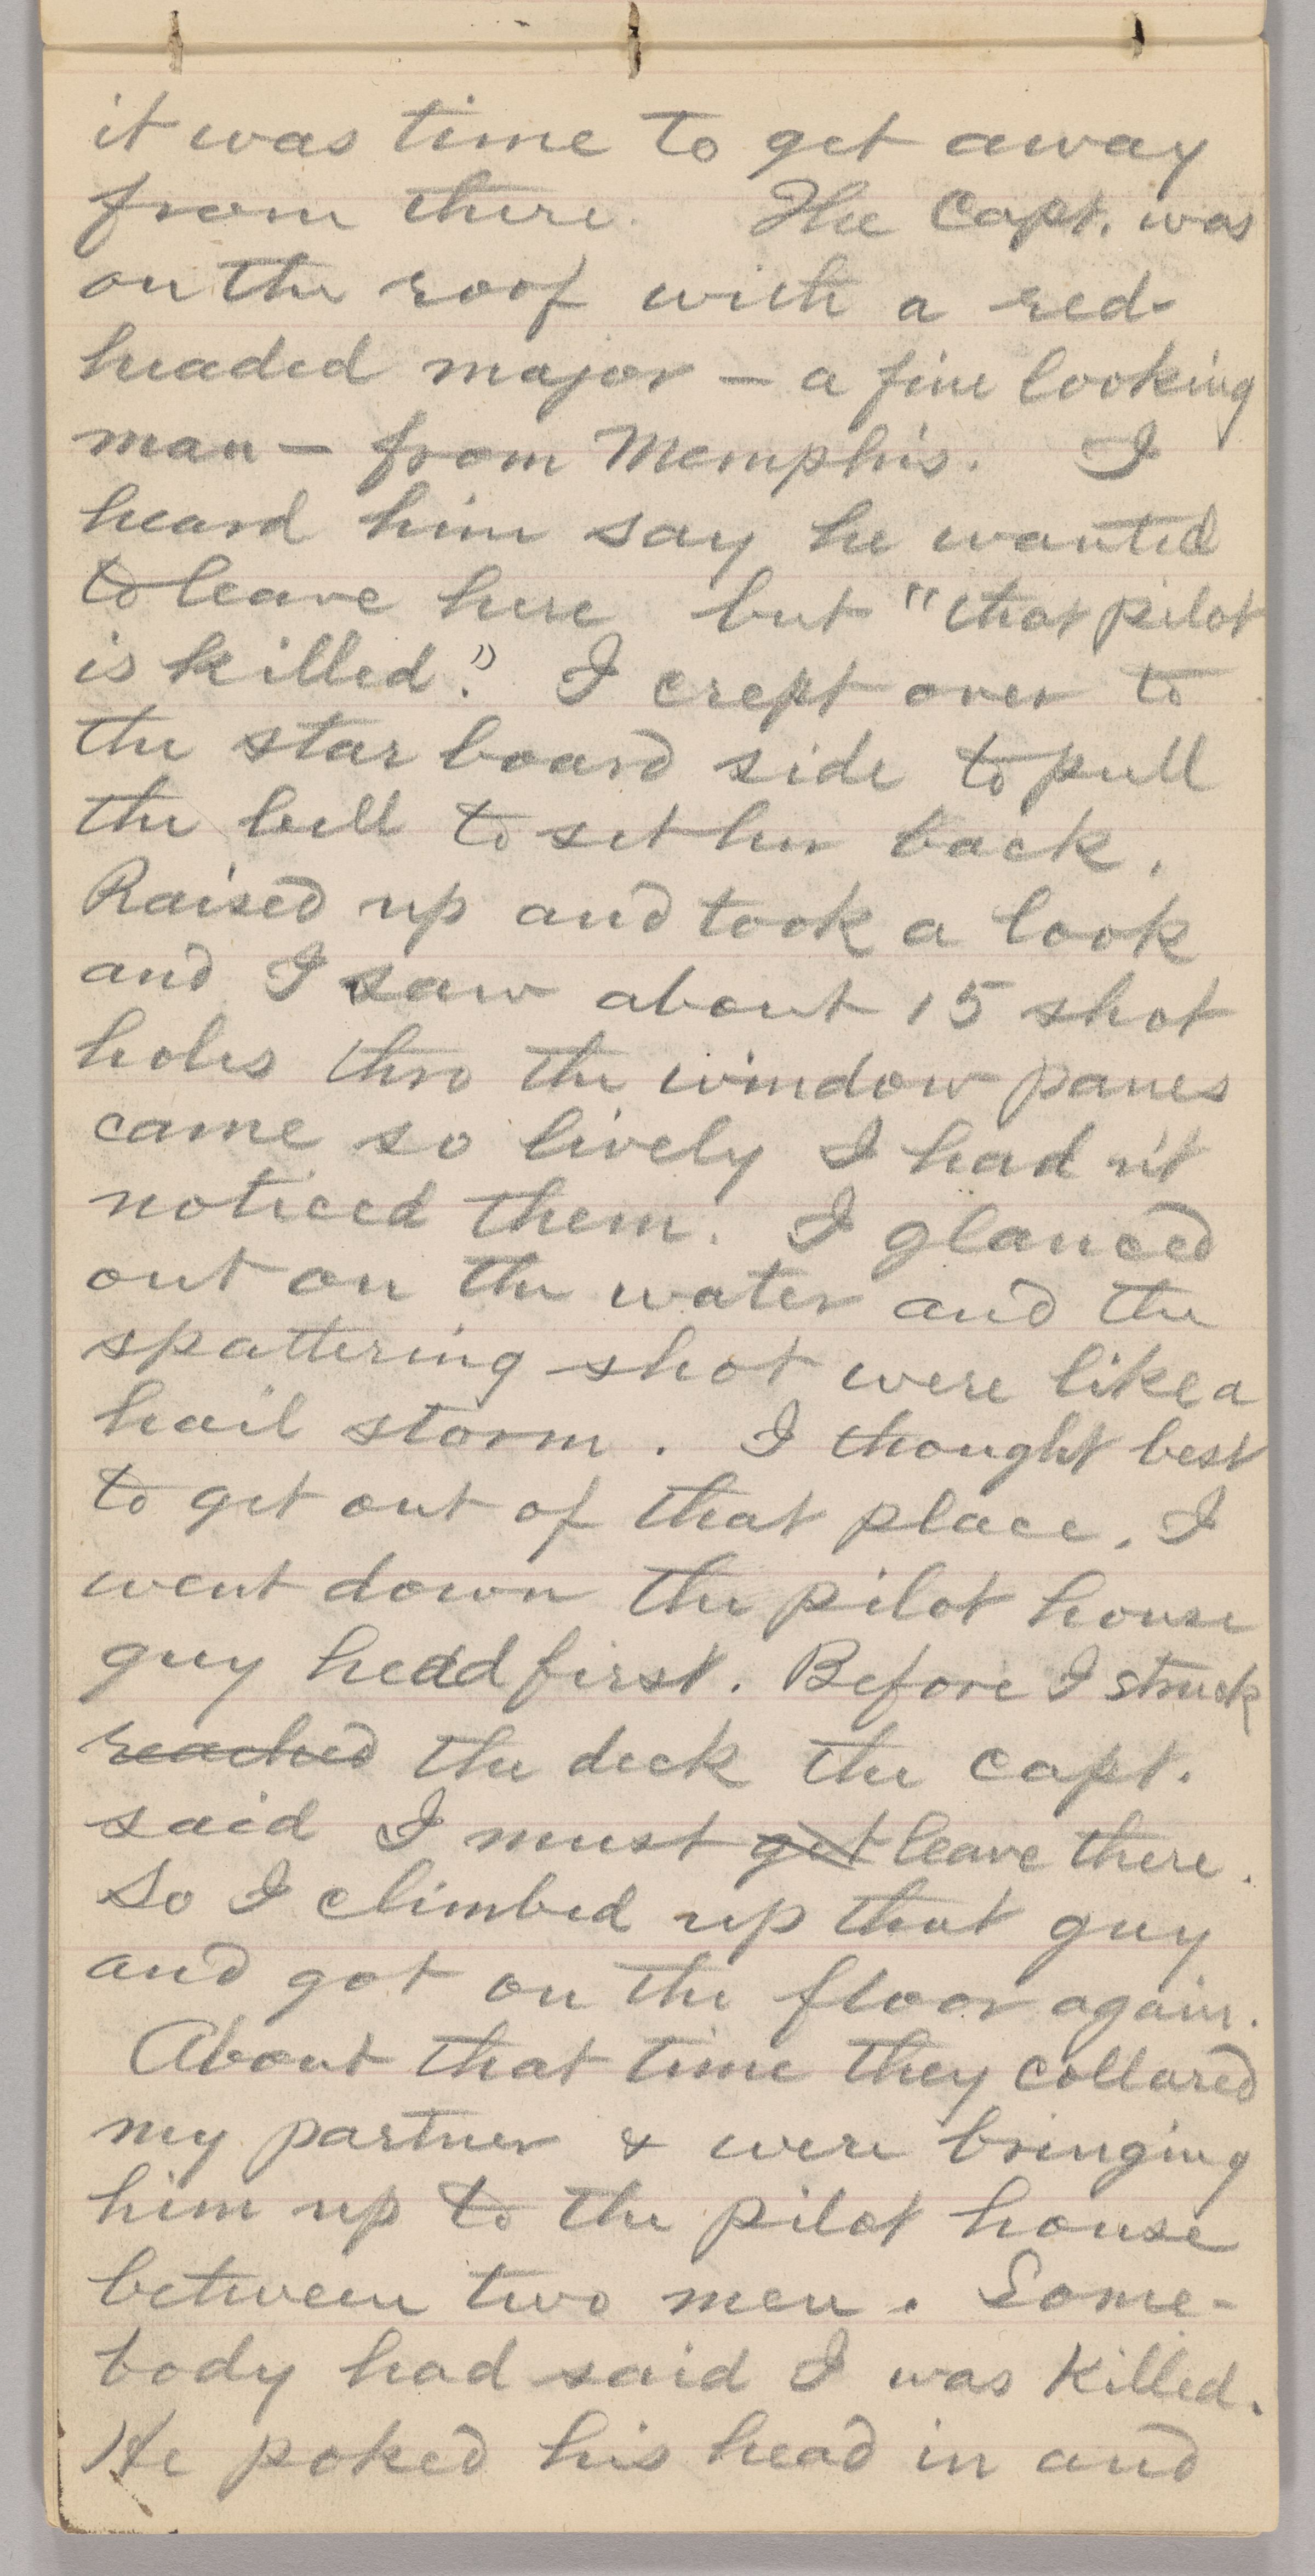 it was time to get away
from there. The Capt. was
on the roof with a red-
headed major — a fine looking
man — from Memphis. I
heard him say he wanted
to leave here but "that pilot
is killed." I crept over to
the star board side to pull
the bell to set her back.
Raised up and took a look
and I saw about 15 shot
holes thro the window panes
came so lively I had n't
noticed them. I glanced
out on the water and the
spattering shot were like a
hail storm. I thought best
to get out of that place. I
went down the pilot house
guy head first. Before I struck
reached the deck the capt.
said I must get leave there.
So I climbed up that guy
and got on the floor again.
About that time they collared
my partner & were bringing
him up to the pilot house
between two men. Some-
body had said I was killed.
He poked his head in and